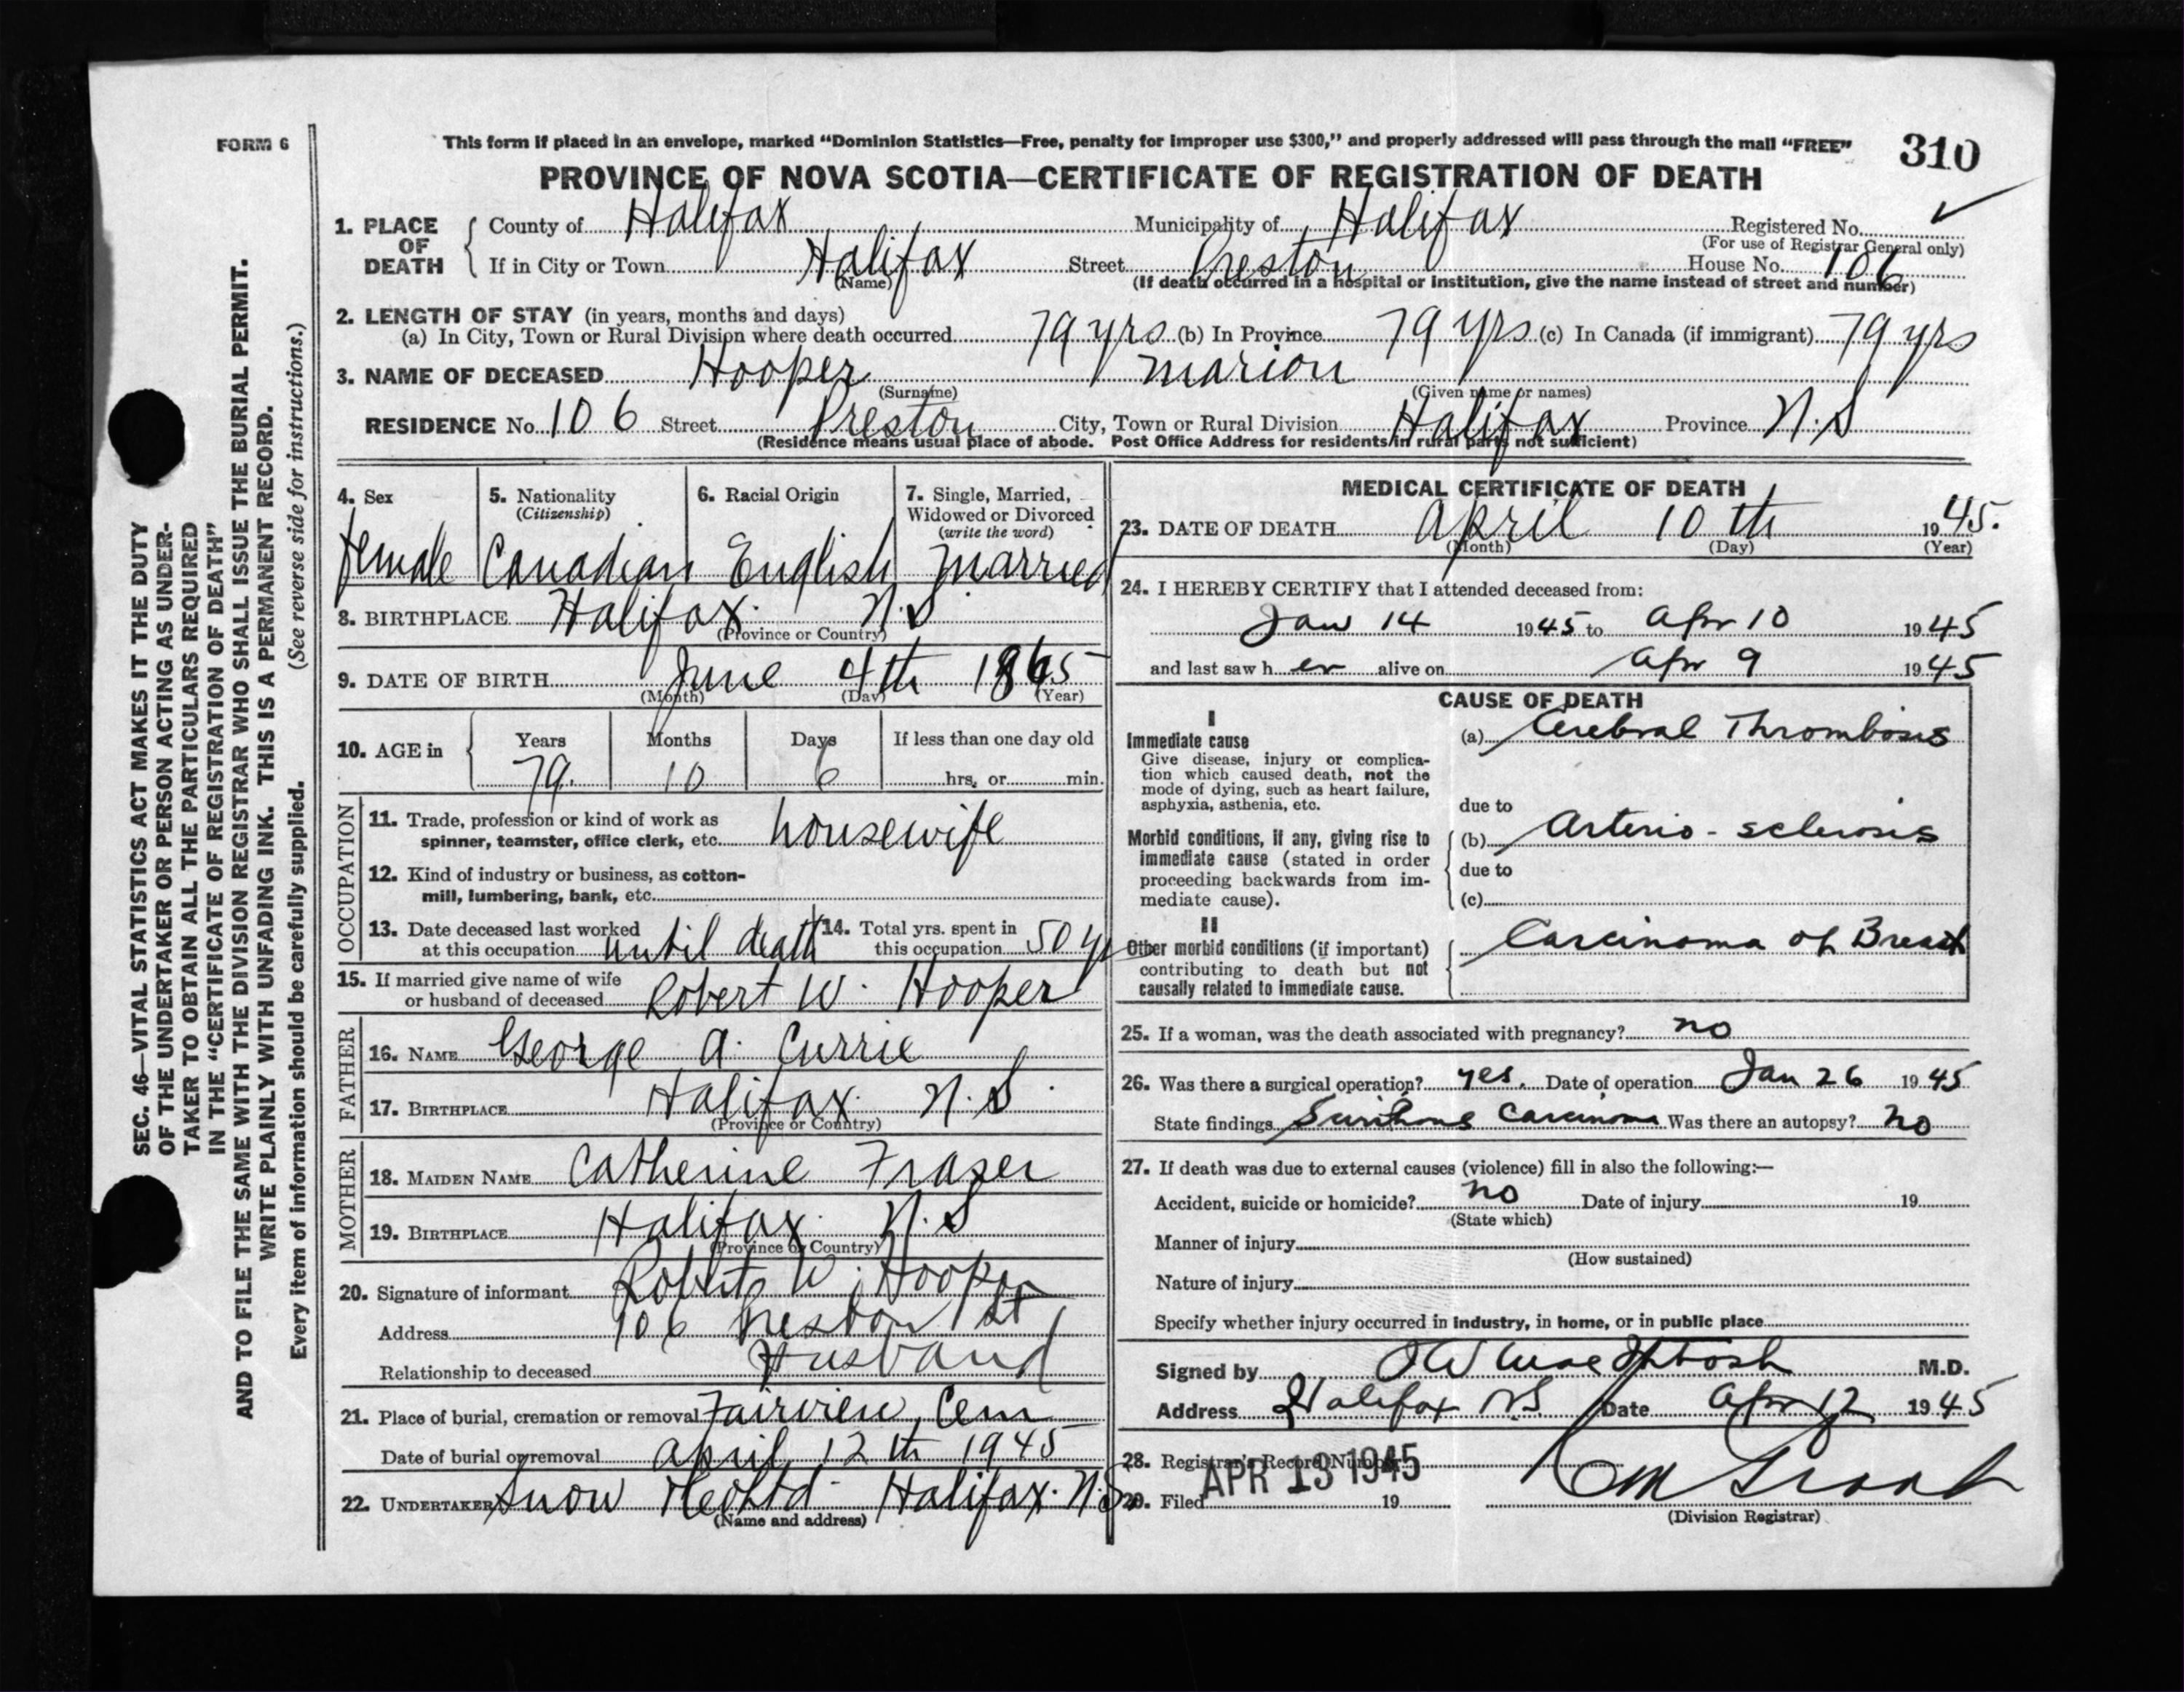 FORM 6
This form if placed in an envelope, marked “Dominion Statistics—Free, penalty for improper use $300,” and properly addressed will pass through the mail “FREE”
310
PROVINCE OF NOVA SCOTIA—CERTIFICATE OF REGISTRATION OF DEATH
SEC. 46—VITAL STATISTICS ACT MAKES IT THE DUTY
OF THE UNDERTAKER OR PERSON ACTING AS UNDER-
TAKER TO OBTAIN ALL THE PARTICULARS REQUIRED
IN THE “CERTIFICATE OF REGISTRATION OF DEATH”
AND TO FILE THE SAME WITH THE DIVISION REGISTRAR WHO SHALL ISSUE THE BURIAL PERMIT.
WRITE PLAINLY WITH UNFADING INK. THIS IS A PERMANENT RECORD.
Every item of information should be carefully supplied. (See reverse side for instructions.)
1. PLACE OF DEATH
County of Halifax Municipality of Halifax Registered No.
(For use of Registrar General only)
If in City or Town Halifax Street Preston House No. 106
(Name) (If death occurred in a hospital or institution, give the name instead of street and number)
2. LENGTH OF STAY (in years, months and days)
(a) In City, Town or Rural Division where death occurred 79 yrs (b) In Province 79 yrs (c) In Canada (if immigrant) 79 yrs
3. NAME OF DECEASED Hooper Marion
(Surname) (Given name or names)
RESIDENCE No. 106 Street Preston City, Town or Rural Division Halifax Province N.S
(Residence means usual place of abode. Post Office Address for residents in rural parts not sufficient)
4. Sex 5. Nationality 6. Racial Origin 7. Single, Married,
(Citizenship) Widowed or Divorced
(write the word)
female Canadian English Married
8. BIRTHPLACE Halifax. N.S.
(Province or Country)
9. DATE OF BIRTH June 4th 1865
(Month) (Day) (Year)
10. AGE in Years Months Days If less than one day old
79. 10 6 hrs. or min.
OCCUPATION
11. Trade, profession or kind of work as
spinner, teamster, office clerk, etc. housewife
12. Kind of industry or business, as cotton-
mill, lumbering, bank, etc.
13. Date deceased last worked 14. Total yrs. spent in
at this occupation until death this occupation 50 yr
15. If married give name of wife
or husband of deceased Robert W. Hooper
FATHER
16. NAME George A. Currie
17. BIRTHPLACE Halifax. N.S.
(Province or Country)
MOTHER
18. MAIDEN NAME Catherine Fraser
19. BIRTHPLACE Halifax. N.S
(Province or Country)
20. Signature of informant Robert W. Hooper
Address 106 Preston St
Relationship to deceased Husband
21. Place of burial, cremation or removal Fairview, Cem
Date of burial or removal April 12th 1945
22. UNDERTAKER Snow Ltd Halifax. N.S.
(Name and address)
MEDICAL CERTIFICATE OF DEATH
23. DATE OF DEATH April 10th 1945.
(Month) (Day) (Year)
24. I HEREBY CERTIFY that I attended deceased from:
Jan 14 1945 to Apr 10 1945
and last saw her alive on Apr 9 1945
CAUSE OF DEATH
I
Immediate cause (a) Cerebral Thrombosis
Give disease, injury or complica-
tion which caused death, not the
mode of dying, such as heart failure,
asphyxia, asthenia, etc. due to
Morbid conditions, if any, giving rise to (b) Arterio-sclerosis
immediate cause (stated in order
proceeding backwards from im- due to
mediate cause). (c)
II
Other morbid conditions (if important) Carcinoma of Breast
contributing to death but not
causally related to immediate cause.
25. If a woman, was the death associated with pregnancy? no
26. Was there a surgical operation? yes. Date of operation Jan 26 1945
State findings Carcinoma Was there an autopsy? no
27. If death was due to external causes (violence) fill in also the following:—
Accident, suicide or homicide? no Date of injury 19
(State which)
Manner of injury
(How sustained)
Nature of injury
Specify whether injury occurred in industry, in home, or in public place
Signed by MacIntosh M.D.
Address Halifax NS Date Apr 12 1945
28. Registrar's Record Number
APR 13 1945
29. Filed 19
(Division Registrar)